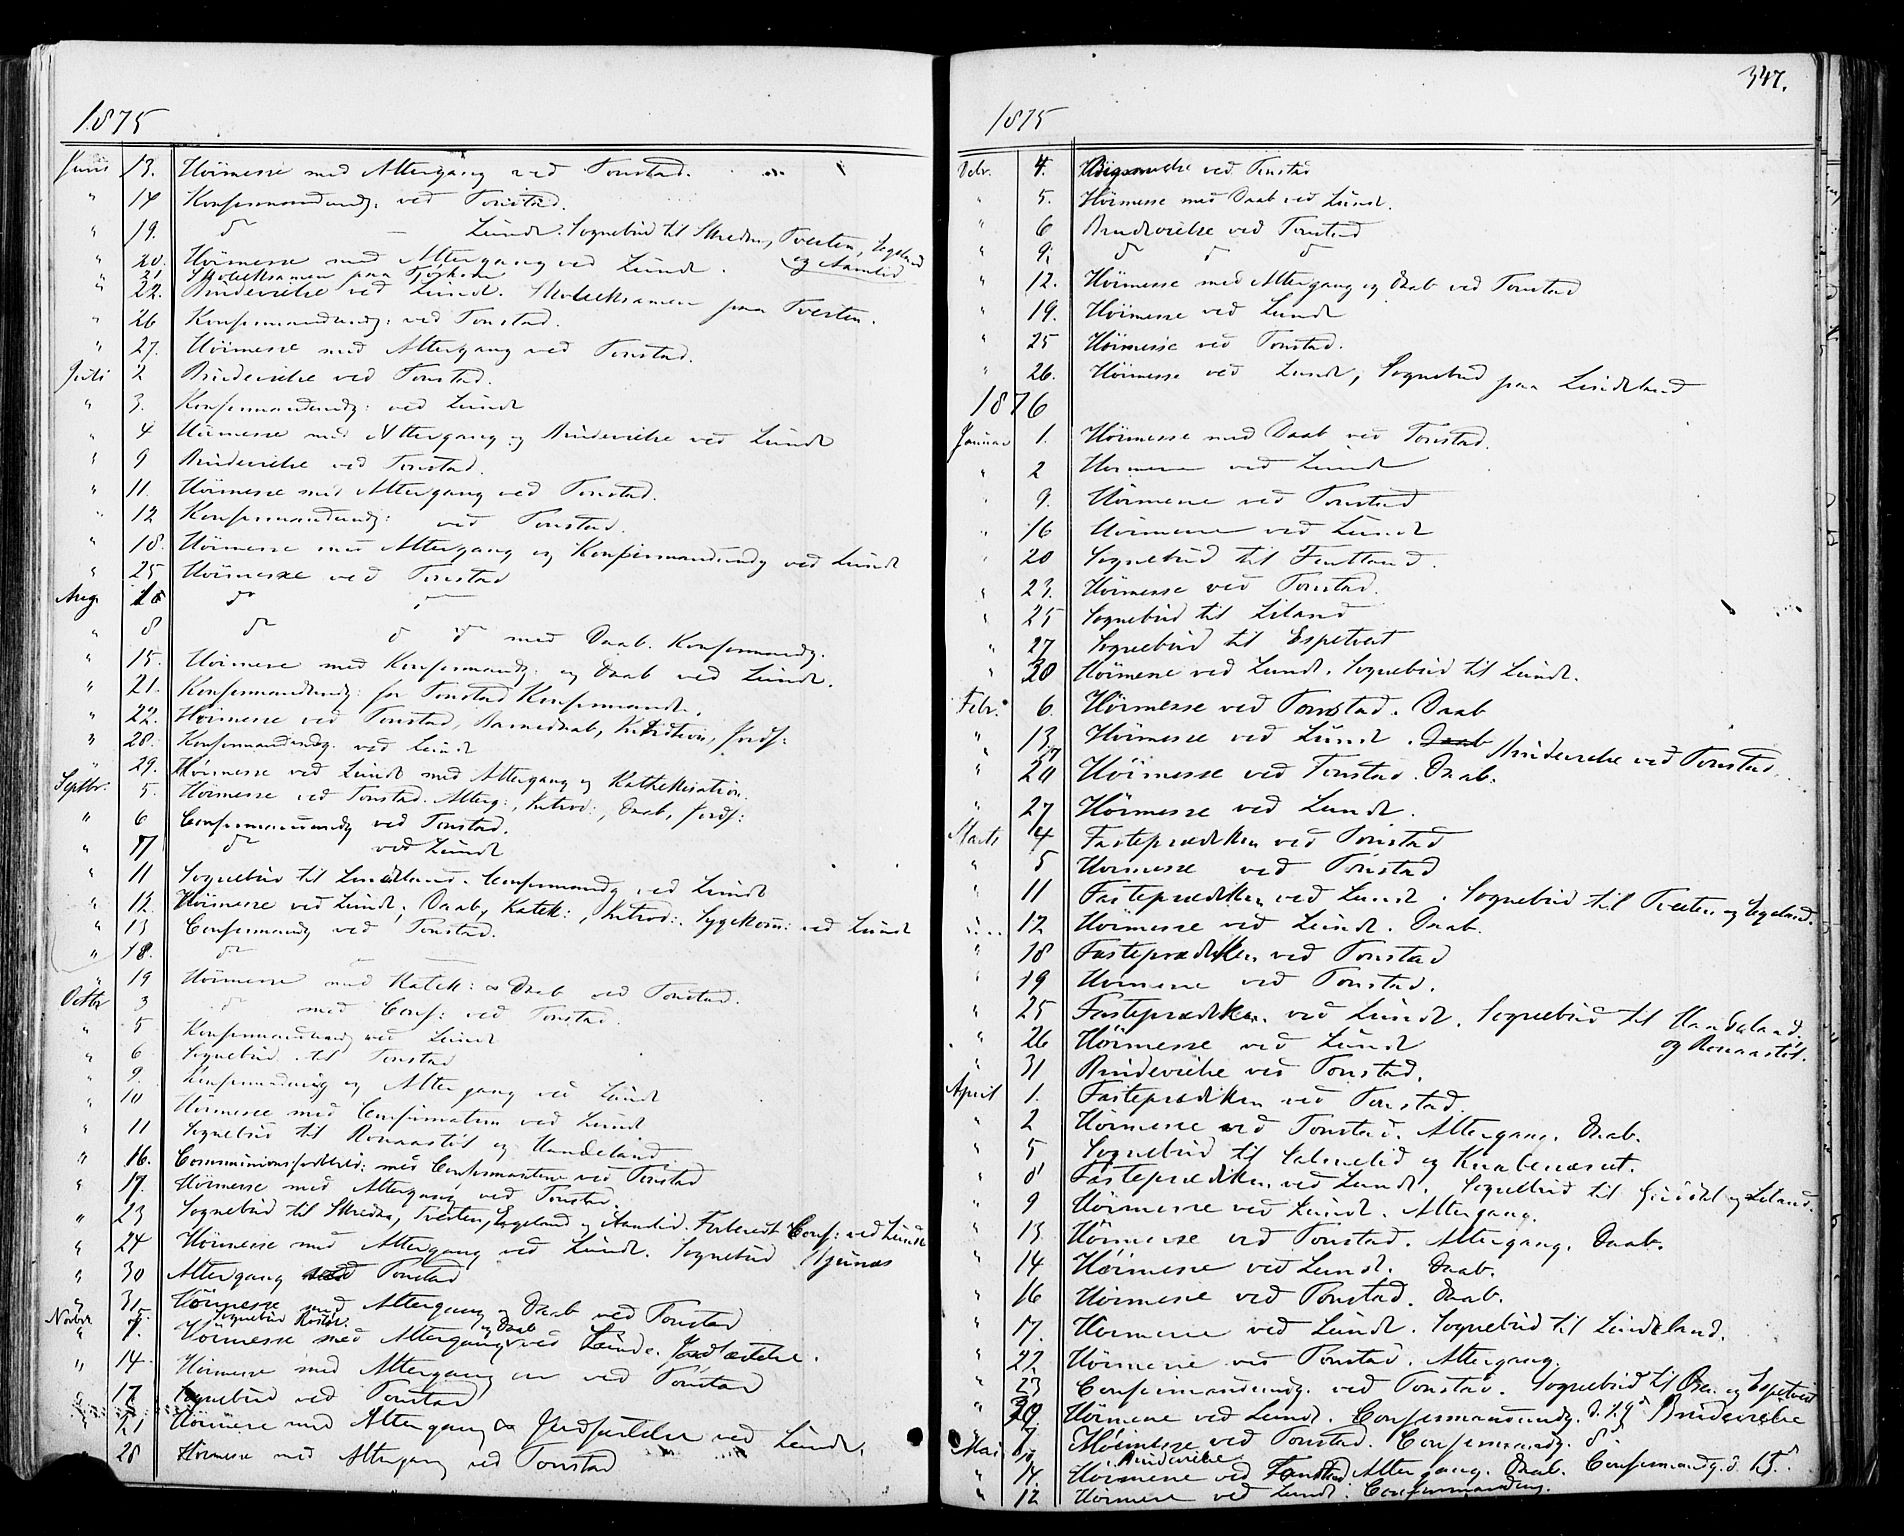 1875
Junii 13. Höimesse med Altergang ved Tonstad.
" 14 Konfirmandundv: ved Tonstad.
" 19. do — Lunde. Sognebud til Skreden, Tveiten, Segeland og Aamlid
" 20. Höimesse med Altergang ved Lunde.
" 21. Skoleeksamen paa
" 22. Brudevielse ved Lunde. Skoleeksamen paa Tveiten.
" 26 Konfirmandundv: ved Tonstad.
" 27. Höimesse med Altergang ved Tonstad.
Juli 2 Brudevielse ved Tonstad.
" 3. Konfirmandundv: ved Lunde
" 4 Höimesse med Altergang og Brudevielse ved Lunde
" 9 Brudevielse ved Tonstad.
" 11. Höimesse med Altergang ved Tonstad.
" 12 Konfirmandundv: ved Tonstad.
" 18. Höimesse med Altergang og Konfirmandundv ved Lunde
" 25 Höimesse ved Tonstad
Aug. 1 do do
" 8 do d do med Daab. Konfirmandv.
" 15. Höimesse med Konfirmandv: og Daab ved Lunde.
" 21. Konfirmandundv: for Tonstad Konfirmander.
" 22. Höimesse ved Tonstad, Barnedaab, Introdktion, Jordf:
" 28. Konfirmandundv. ved Lunde
" 29. Höimesse ved Lunde med Altergang og Kathekisation.
Septbr. 5. Höimesse ved Tonstad. Alterg:, Introd:, Daab, Jordf:
" 6 Confirmandundv ved Tonstad.
" 7 do ved Lunde
" 11 Sognebud til Lindeland. Confirmandv ved Lunde
" 12. Höimesse ved Lunde, Daab, Katek:, Introd:. Sygekom: ved Lunde
" 13 Confirmandv ved Tonstad.
" 18. do — —
" 19 Höimesse med Katek: & Daab ved Tonstad.
Octbr 3 do med Conf: ved Tonstad.
" 5 Konfirmandundv ved Lunde
" 6 Sognebud til Tonstad
" 9. Konfirmandundv og Altergang ved Lunde
" 10 Höimesse med Confirmation ved Lunde
" 11 Sognebud til Ronaastöl og Handeland.
" 16. Communionsforbered: med Confirmanterne ved Tonstad
" 17. Höimesse med Altergang ved Tonstad.
" 23 Sognebud til Skreden, Tveiten, Segeland og Aamlid. Forberedt Conf: ved Lunde
" 24 Höimesse med Altergang ved Lunde. Sognebud
" 30 Altergang ved Tonstad
" 31. Höimesse med Altergang og Daab ved Tonstad
Novbr 5. Sognebud
" 7. Höimesse med Altergang og Daab ved Lunde. Jordfæstelse.
" 14. Höimesse med Altergang ved Tonstad
" 17 Sognebud ved Tonstad
" 21 Höimesse med Altergang & Jordfæstelse ved Lunde.
" 28 Höimesse med Altergang ved Tonstad
347.
1875
Debr. 4. ved Tonstad
" 5. Höimesse med Daab ved Lunde.
" 6 Brudevielse ved Tonstad
" 9. d d d
" 12. Höimesse med Altergang og Daab ved Tonstad
" 19. Höimesse ved Lunde
" 25 Höimesse ved Tonstad.
" 26. Höimesse ved Lunde, Sognebud paa Lindeland
1876
Januar 1. Höimesse med Daab ved Tonstad.
" 2 Höimesse ved Lunde
" 9. Höimesse ved Tonstad
" 16 Höimesse ved Lunde
" 20 Sognebud til Fintland.
" 23. Höimesse ved Tonstad.
" 25 Sognebud til Liland
" 27 Sognebud til Espetveit
" 30 Höimesse ved Lunde. Sognebud til Lunde.
Febr. 6. Höimesse ved Tonstad. Daab
" 13. Höimesse ved Lunde. Daab
" 17 Brudevielse ved Tonstad.
" 20 Höimesse ved Tonstad. Daab.
" 27 Höimesse ved Lunde.
Marts 4 Fasteprædiken ved Tonstad
" 5 Höimesse ved Tonstad
" 11 Fasteprædiken ved Lunde. Sognebud til Tveiten og Segeland.
" 12 Höimesse ved Lunde. Daab.
" 18 Fasteprædiken ved Tonstad
" 19 Höimesse ved Tonstad.
" 25 Fasteprædiken ved Lunde. Sognebud til Handeland og Ronaastöl.
" 26 Höimesse ved Lunde
" 31 Brudevielse ved Tonstad.
April 1. Fasteprædiken ved Tonstad.
" 2 Höimesse ved Tonstad. Altergang. Daab.
" 5 Sognebud til Salmelid og Knabenæset.
" 8 Fasteprædiken ved Lunde. Sognebud til og Liland.
" 9 Höimesse ved Lunde. Altergang.
" 13 Höimesse ved Tonstad. Altergang. Daab.
" 14 Höimesse ved Lunde. Daab.
" 16 Höimesse ved Tonstad. Daab.
" 17. Höimesse ved Lunde. Sognebud til Lindeland.
" 22. Höimesse ved Tonstad. Altergang.
" 23 Confirmandundv. ved Tonstad. Sognebud til og Espetveit
" Höimesse ved Lunde. Confirmandundv. d. 29de Brudevielse
Mai 7. Höimesse ved Tonstad. Confirmandv. 8de
" Brudevielse.
" 14. Höimesse ved Tonstad Altergang. Daab. Confirmandv. d. 15de
" Höimesse ved Lunde. Confirmandundv.